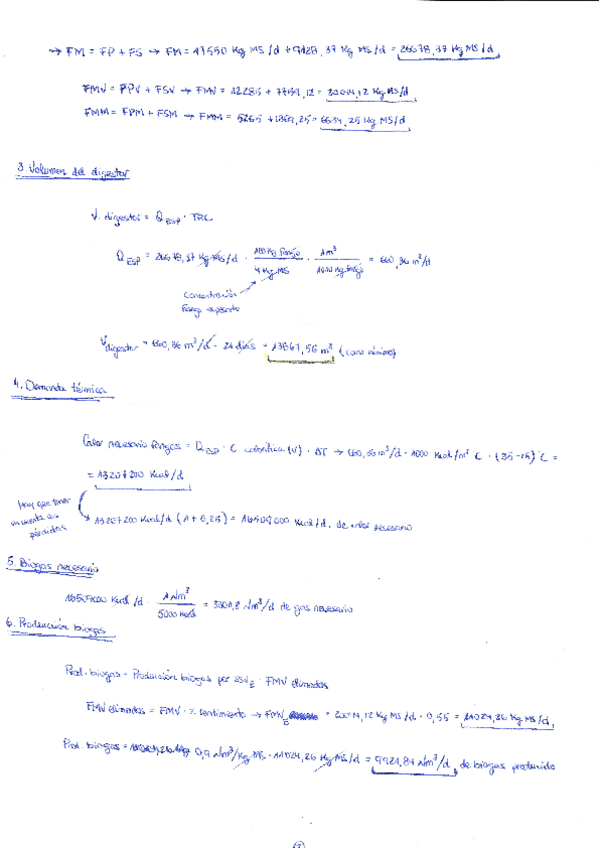 → FM = FP + FS → FM = 17550 Kg MS/d + 9128,37 Kg MS/d = 26678,37 Kg MS/d
FMV = FPV + FSV → FMV = 12285 + 7759,12 = 20044,12 Kg MS/d
FMM = FPM + FSM → FMM = 5265 + 1369,25 = 6634,25 Kg MS/d
3. Volumen del digestor
V. digestor = Q ESP · TRC
Q ESP = 26678,37 Kg MS/d · 100 Kg fango / 4 Kg MS · 1m³ / 1010 Kg fango = 660,36 m³/d
Concentración
fango espesado
V digestor = 660,36 m³/d · 21 días = 13867,56 m³ (como mínimo)
4. Demanda térmica
Calor necesario fangos = Q ESP · C calorífica (V) · ΔT → 660,36 m³/d · 1000 Kcal/m³ °C · (35-15) °C =
= 13207200 Kcal/d
Hay que tener
en cuenta las
pérdidas
13207200 Kcal/d (1 + 0,25) = 16509000 Kcal/d. de calor necesario
5. Biogas necesario
16509000 Kcal/d · 1 Nm³ / 5000 Kcal = 3301,8 Nm³/d de gas necesario
6. Producción biogas
Prod. biogas = Producción biogas por SSV E · FMV eliminados
FMV eliminados = FMV · % rendimiento → FMV E = 20044,12 Kg MS/d · 0,55 = 11024,26 Kg MS/d
Prod. biogas = 0,9 Nm³/Kg MS · 11024,26 Kg MS/d = 9921,84 Nm³/d de biogas producido
②